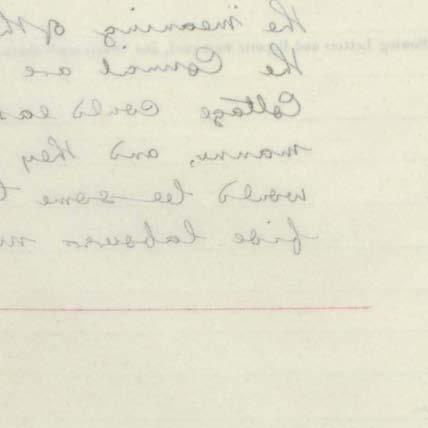 the meaning of th
the Council are
Cottage could eas
manner, and they
would be some t
five labourers